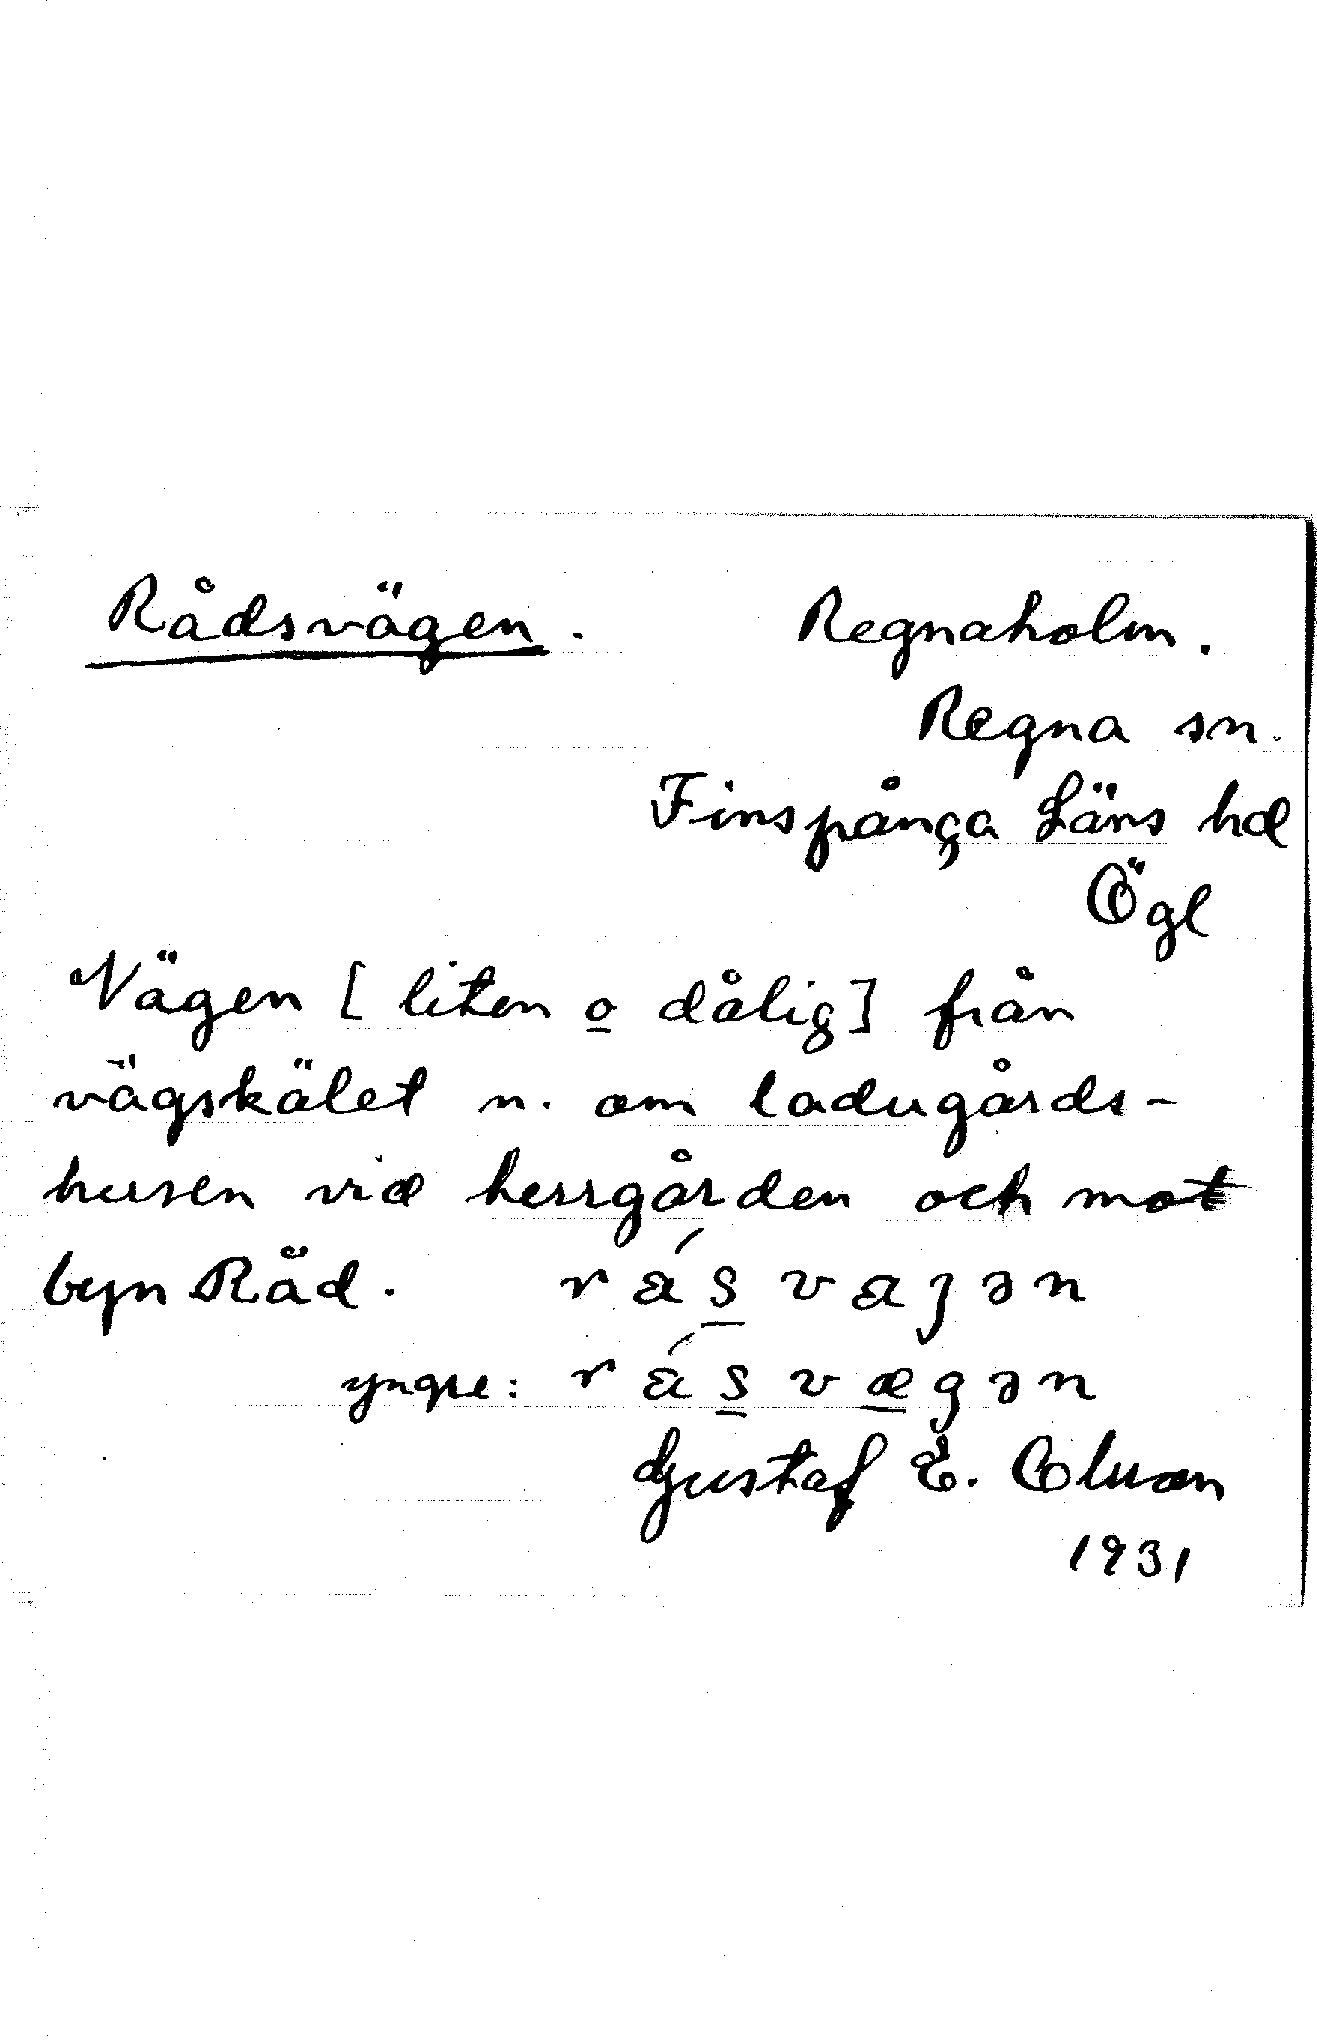 Rådsvägen. Regnaholm.
Regna sn.
Finspånga Läns hd
Ögl
Vägen [liten o dålig] från
vägskälet n. om ladugårds-
husen vid herrgården och mot
byn Råd. rásvaȷən
yngre: rásvægən
Gustaf E.
1931